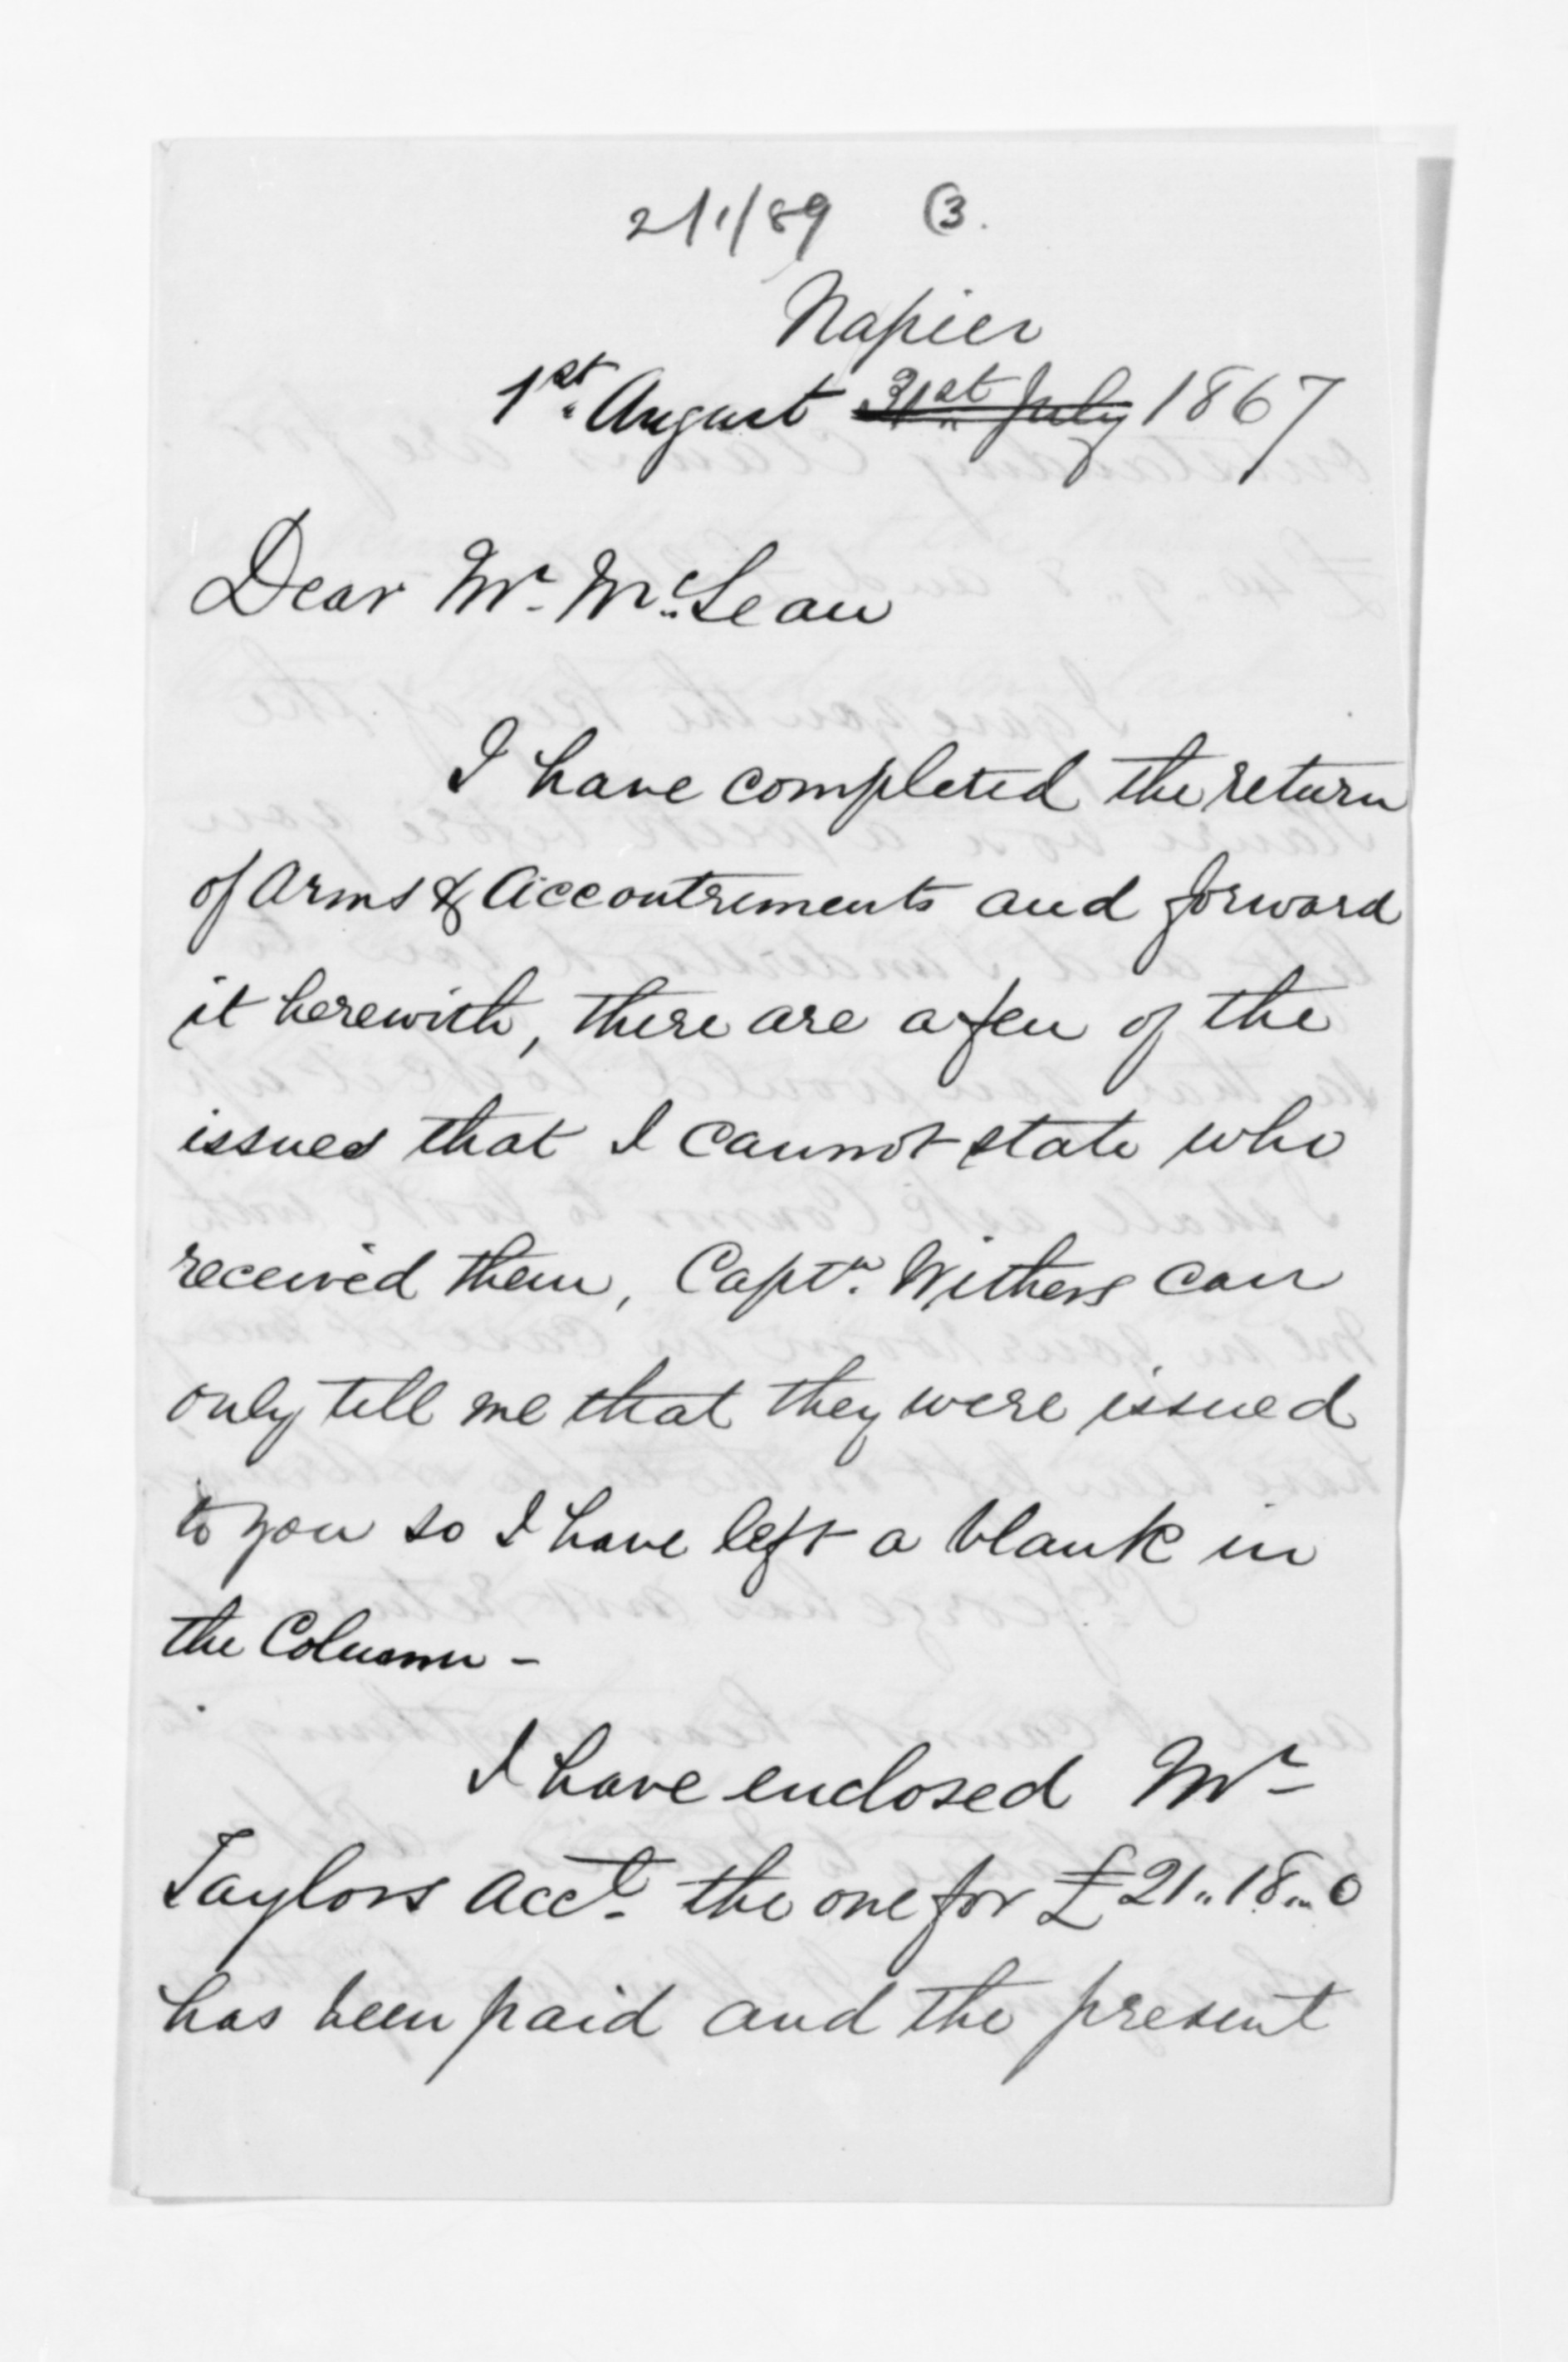 2/1/89 (3.
Napier
1st. August ~~31st July~~ 1867
Dear Mr. McLean
I have completed the return
of Arms & Accoutrements and forward
it herewith, there are a few of the
issues that I cannot state who
received them, Captn. Withers can
only tell me that they were issued
to you so I have left a blank in
the Column -
I have enclosed Mr
Taylors acct. the one for £21..18..0
has been paid and the present